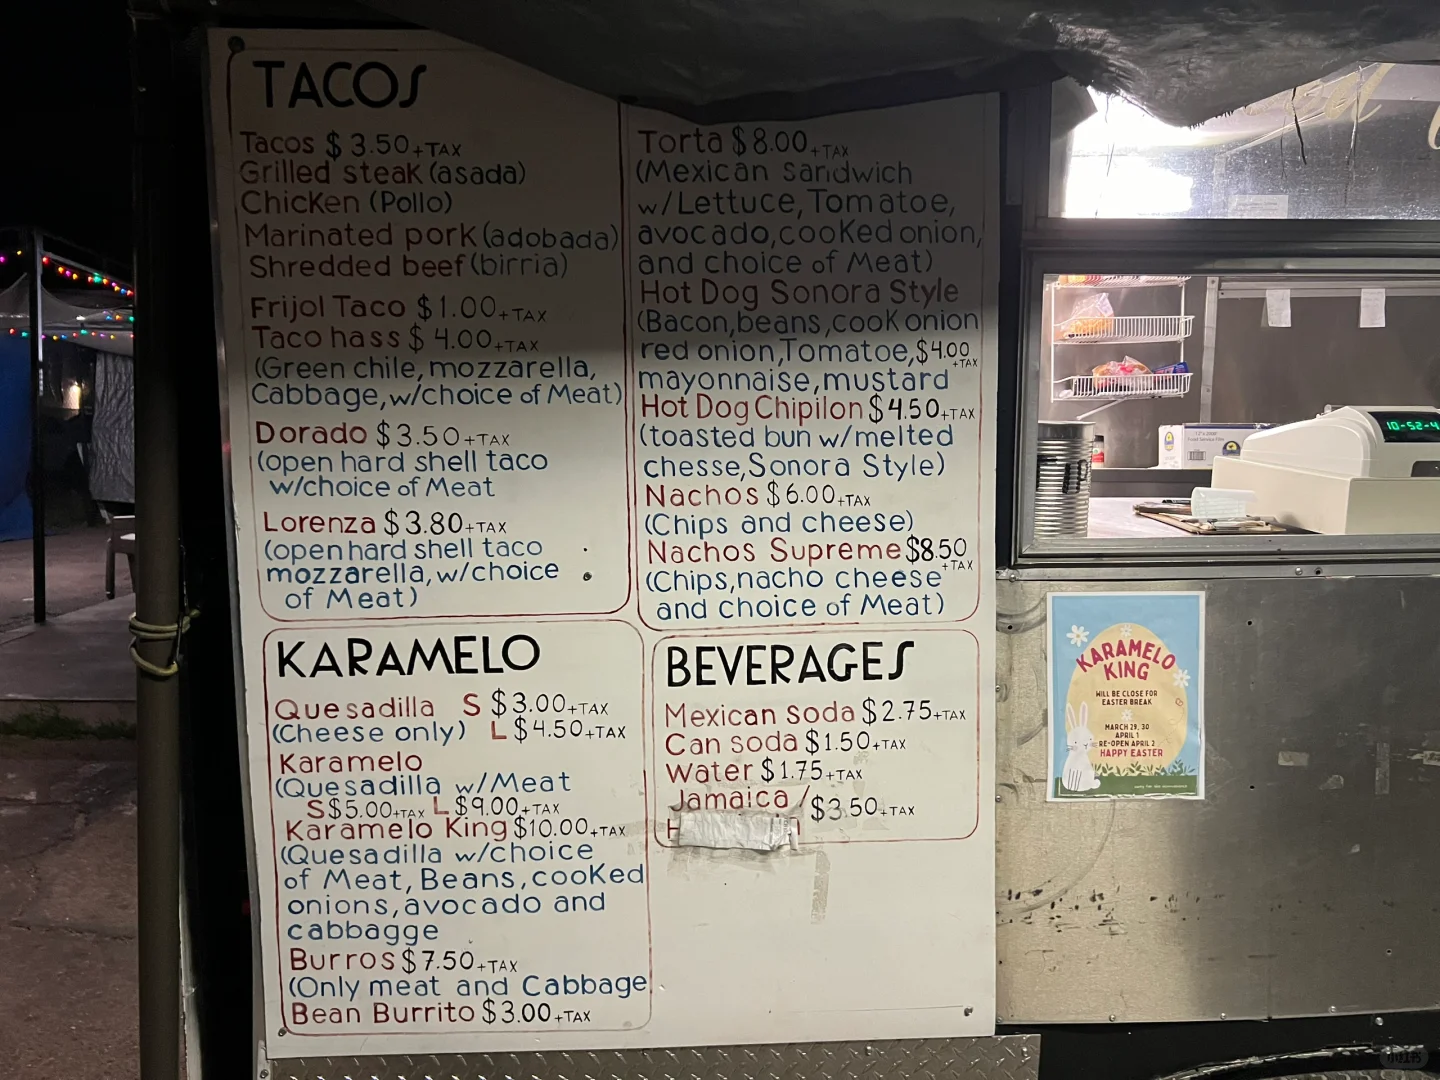 TACOS
Tacos $3.50+TAX
Grilled steak (asada)
Chicken (Pollo)
Marinated pork (adobada)
Shredded beef (birria)
Frijol Taco $1.00+TAX
Taco hass $4.00+TAX
(Green chile, mozzarella,
Cabbage, w/choice of Meat)
Dorado $3.50+TAX
(open hard shell taco
w/choice of Meat
Lorenza $3.80+TAX
(open hard shell taco
mozzarella, w/choice
of Meat)
Torta $8.00+TAX
(Mexican sandwich
w/Lettuce, Tomatoe,
avocado, cooked onion,
and choice of Meat)
Hot Dog Sonora Style
(Bacon, beans, cook onion
red onion, Tomatoe, $4.00+TAX
mayonnaise, mustard
Hot Dog Chipilon $4.50+TAX
(toasted bun w/melted
chesse, Sonora Style)
Nachos $6.00+TAX
(Chips and cheese)
Nachos Supreme $8.50+TAX
(Chips, nacho cheese
and choice of Meat)
KARAMELO
Quesadilla S $3.00+TAX
(Cheese only) L $4.50+TAX
Karamelo
(Quesadilla w/Meat
S $5.00+TAX L $9.00+TAX
Karamelo King $10.00+TAX
(Quesadilla w/choice
of Meat, Beans, cooked
onions, avocado and
cabbagge
Burros $7.50+TAX
(Only meat and Cabbage
Bean Burrito $3.00+TAX
BEVERAGES
Mexican soda $2.75+TAX
Can soda $1.50+TAX
Water $1.75+TAX
Jamaica / $3.50+TAX
10-52-4
KARAMELO
KING
WILL BE CLOSE FOR
EASTER BREAK
MARCH 29, 30
APRIL 1
RE-OPEN APRIL 2
HAPPY EASTER